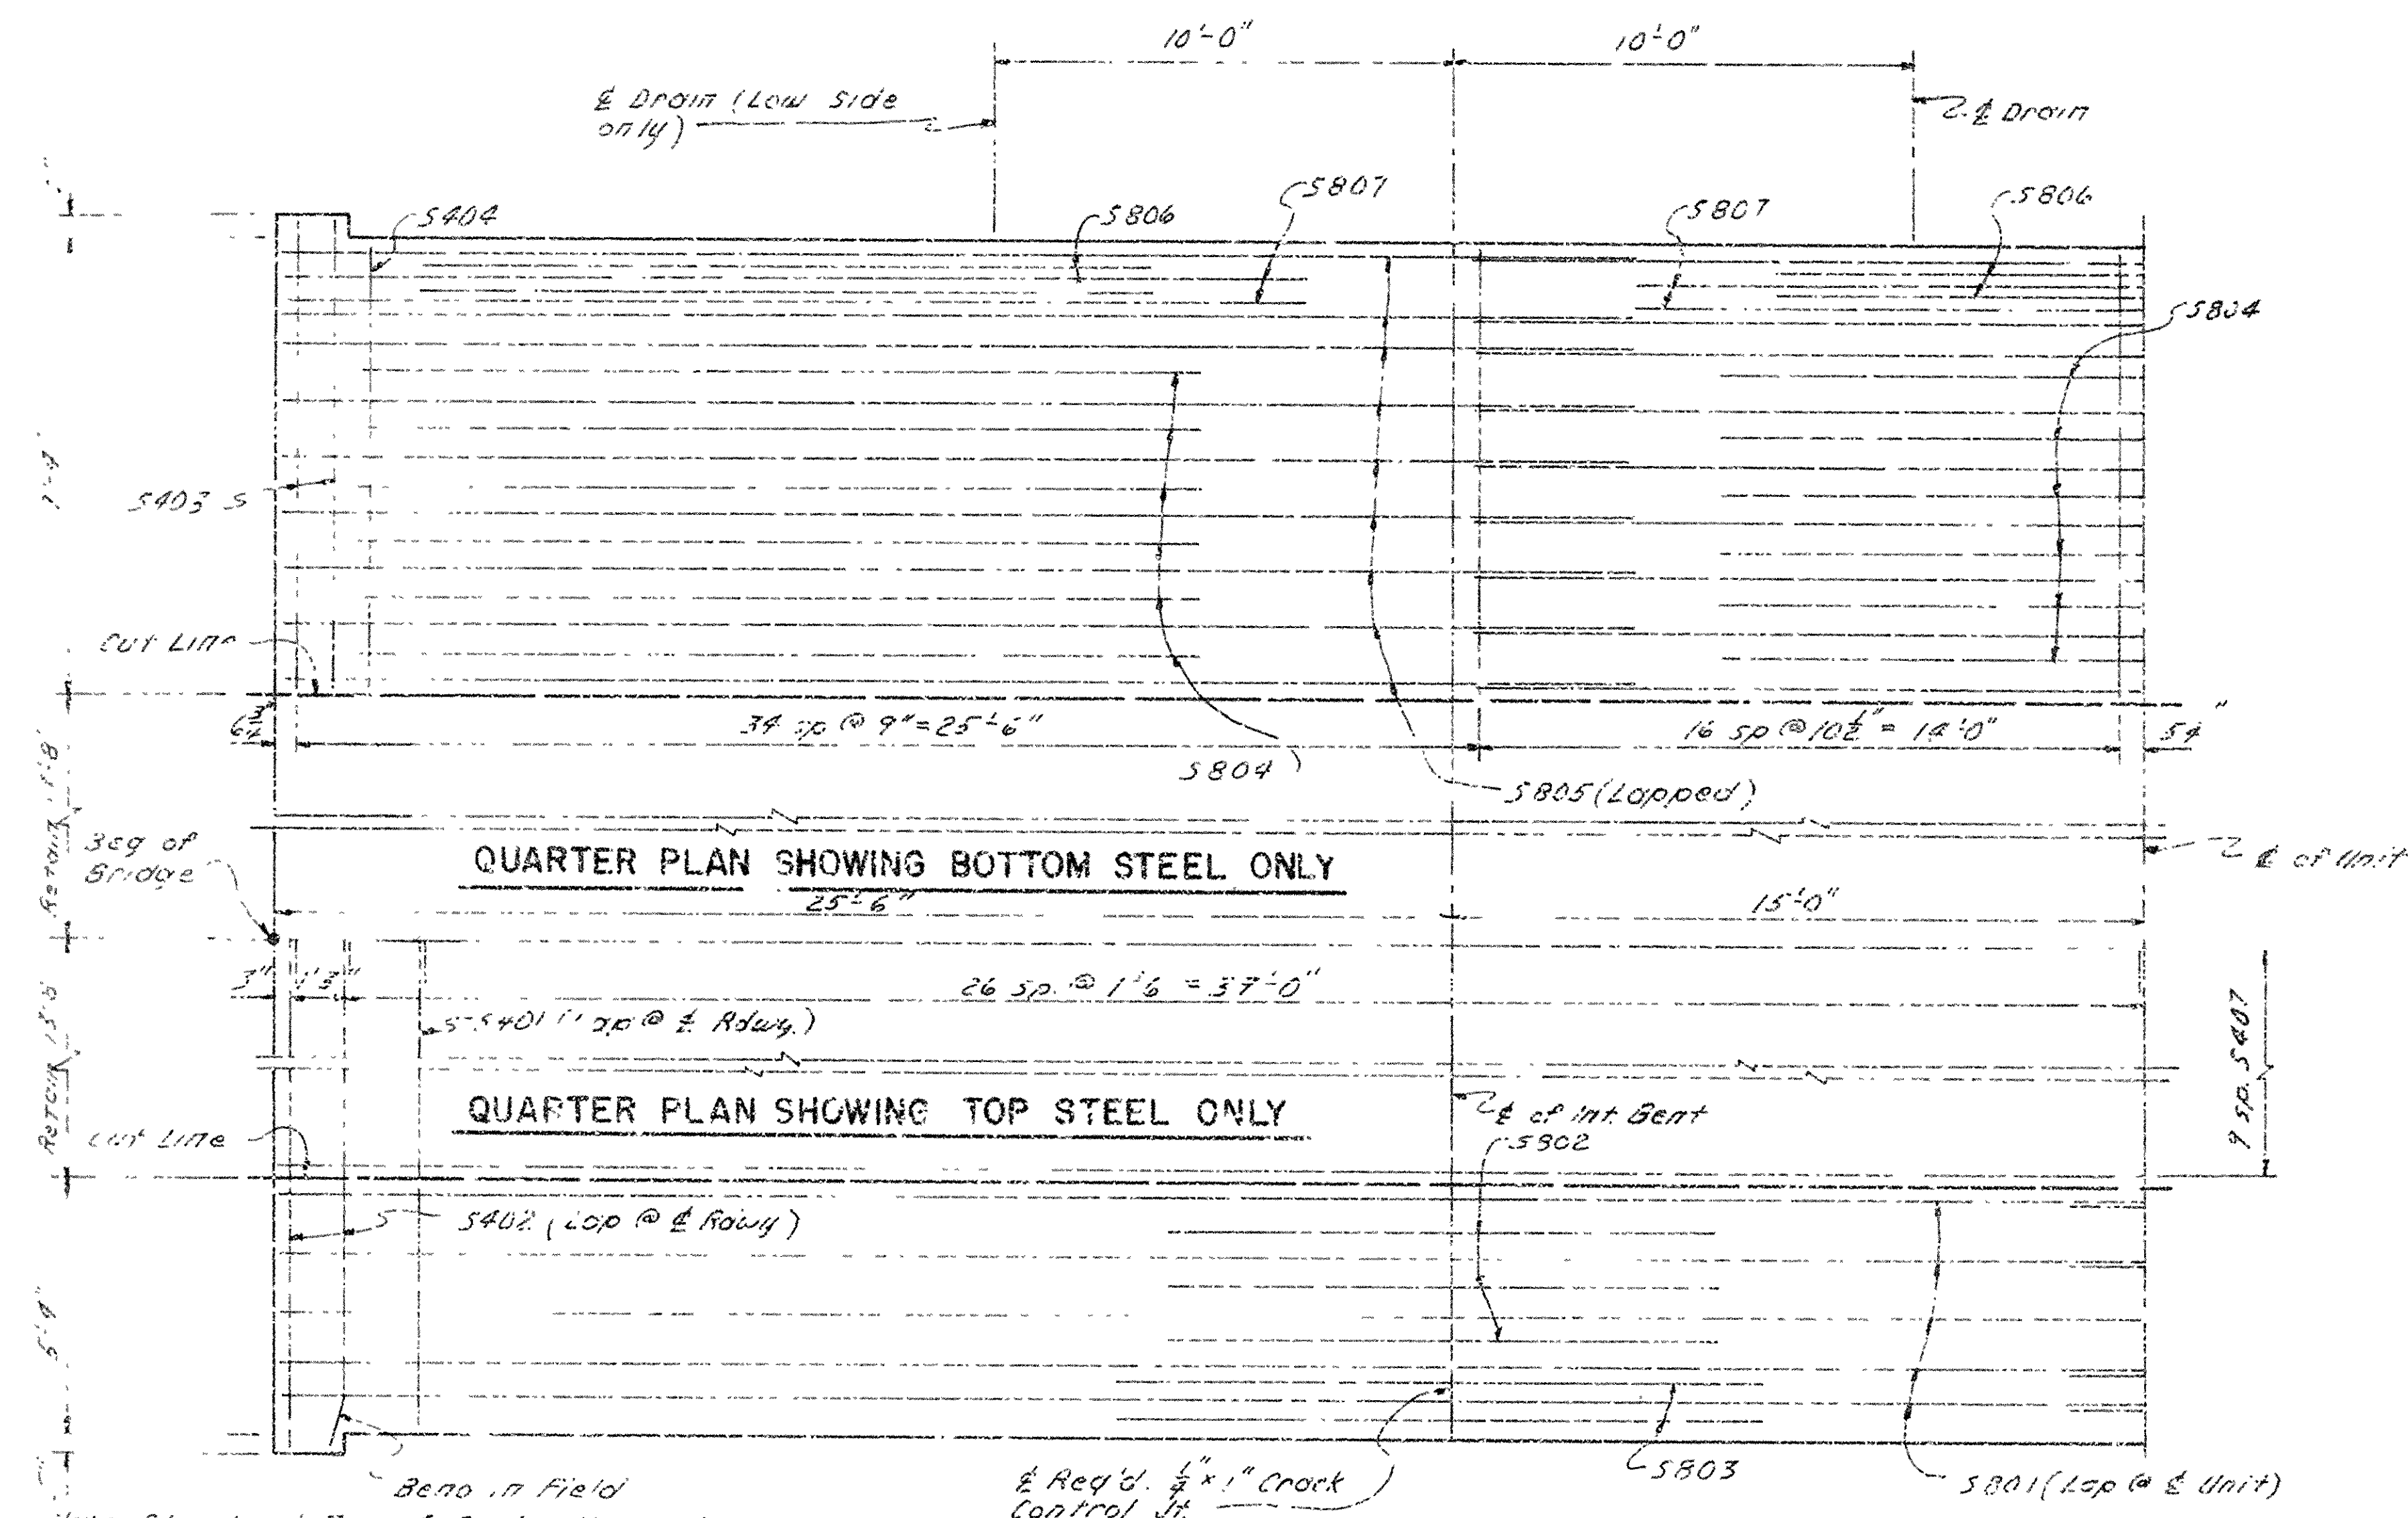 10'-0"
10'-0"
℄ Drain (Low Side
only)
℄ Drain
S807
S404
S806
S807
S806
S804
S403 S
Cut Line
6¾"
34 sp @ 9" = 25'-6"
16 sp @ 10½" = 14'-0"
S804
S805 (Lapped)
Beg of
Bridge
QUARTER PLAN SHOWING BOTTOM STEEL ONLY
℄ of Unit
25'-6"
15'-0"
3"
26 sp. @ 1'-6 = 37'-0"
S401 @ ℄ Rdwy.)
9 sp. S407
QUARTER PLAN SHOWING TOP STEEL ONLY
℄ of Int. Bent
S802
Cut Line
S402 (Lap @ ℄ Rdwy)
5'-4"
Bend in Field
℄ Req'd. ¼" x 1" Crack
Control Jt.
S803
S801 (Lap @ ℄ Unit)